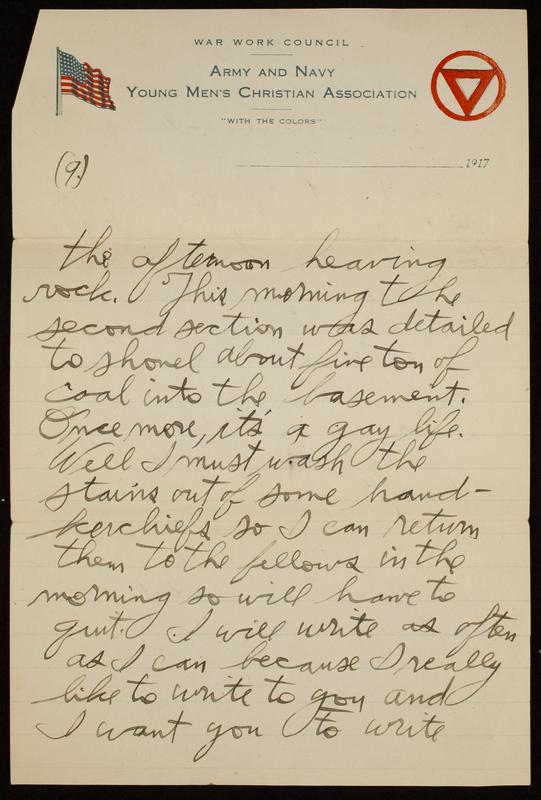 WAR WORK COUNCIL
ARMY AND NAVY
YOUNG MEN'S CHRISTIAN ASSOCIATION
"WITH THE COLORS"
1917
(9.)
the afternoon heaving
rock. This morning the
second section was detailed
to shovel about five ton of
coal into the basement.
Once more, it's a gay life.
Well I must wash the
stains out of some hand-
kerchiefs so I can return
them to the fellows in the
morning so will have to
quit. I will write as often
as I can because I really
like to write to you and
I want you to write